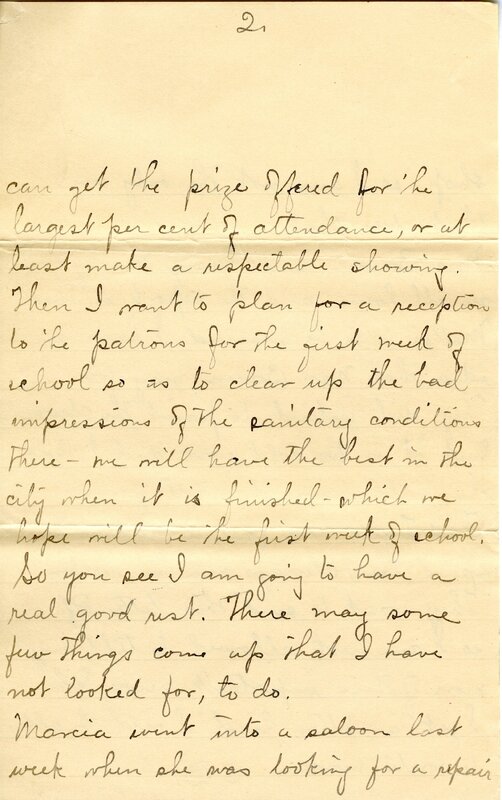 2.
can get the prize offered for the
largest per cent of attendance, or at
least make a respectable showing.
Then I want to plan for a reception
to the patrons for the first week of
school so as to clear up the bad
impressions of the sanitary conditions
there - we will have the best in the
city when it is finished - which we
hope will be the first week of school.
So you see I am going to have a
real good rest. There may some
few things come up that I have
not looked for, to do.
Marcia went into a saloon last
week when she was looking for a repair